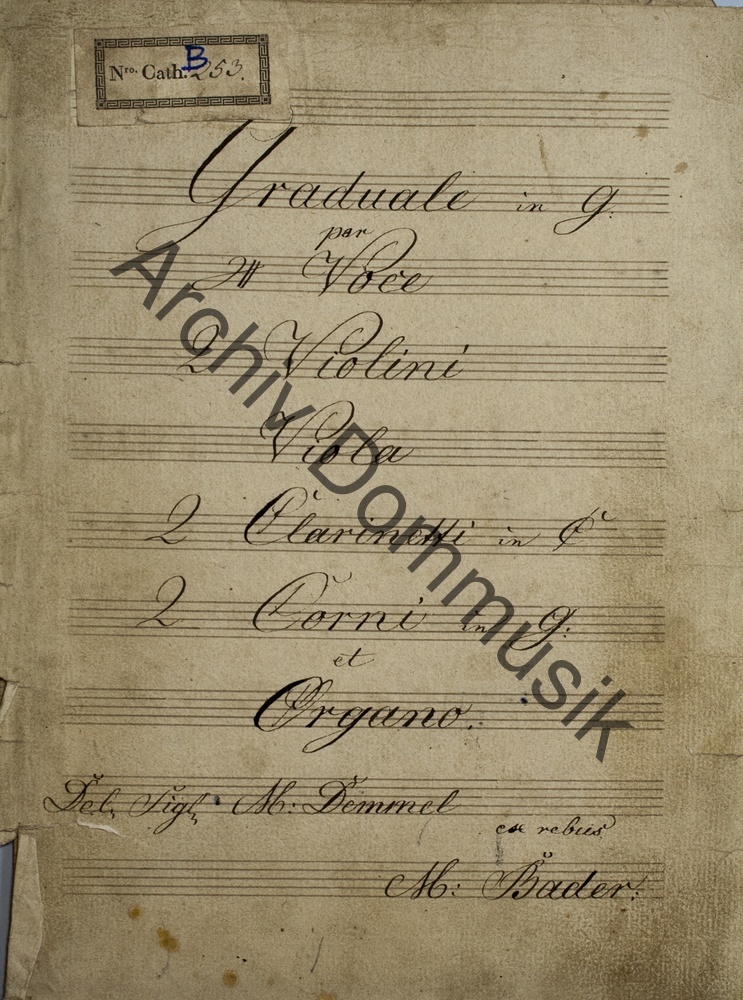 Nro. Cath. B 253.
Graduale in g.
par
4 Voce
2 Violini
Viola
2 Clarinetti in C
2 Corni in g:
et
Organo.
Del Sigl M: Demmel
ex rebus
M: Bader.
Archiv Dommusik